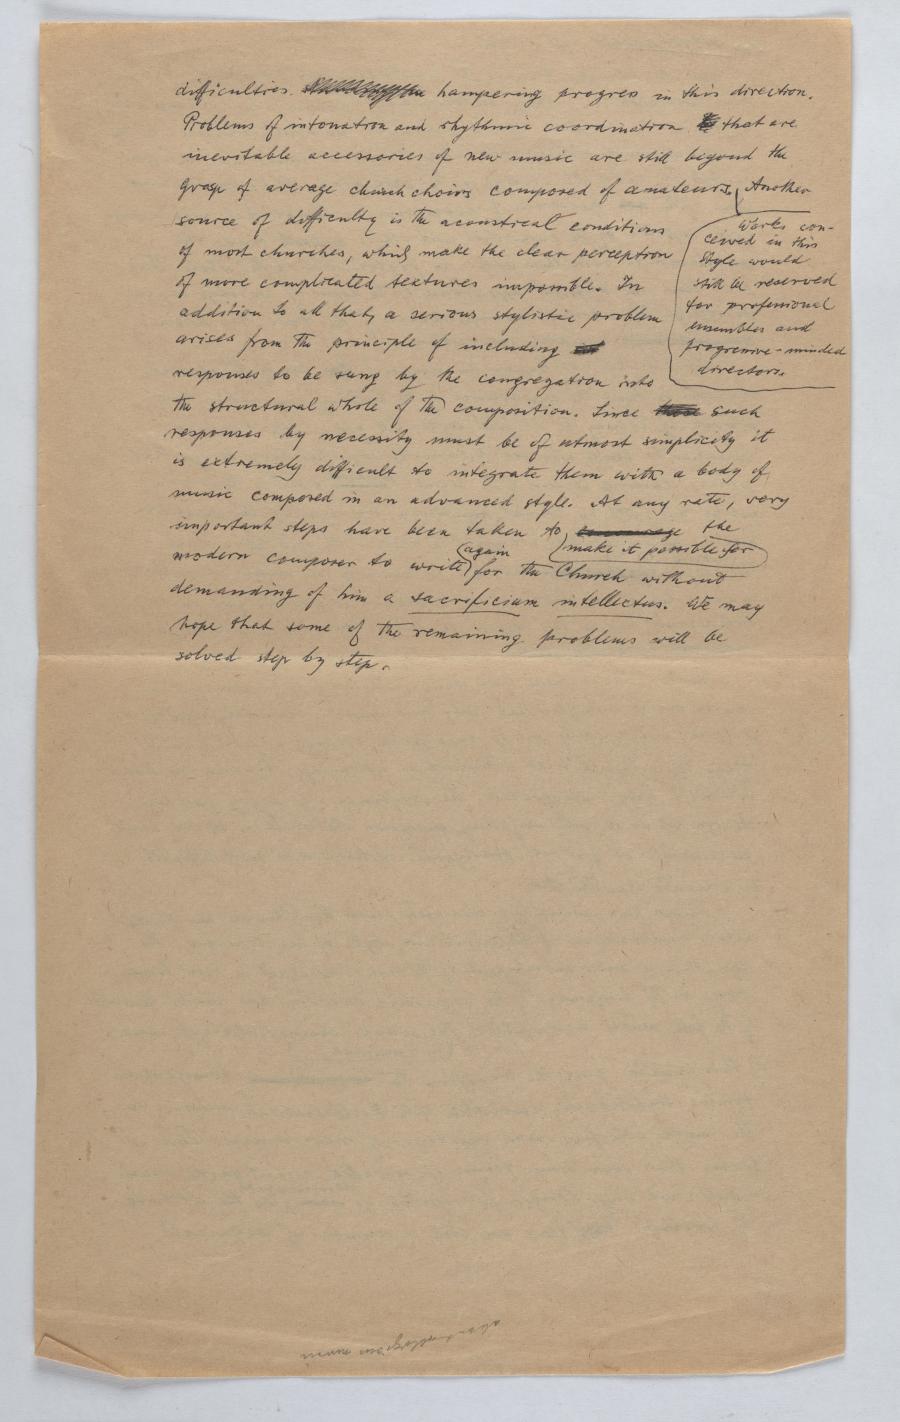 difficulties hampering progress in this direction.
Problems of intonation and rhythmic coordination that are
inevitable accessories of new music are still beyond the
grasp of average church choirs composed of amateurs. Another
Works con-
ceived in this
style would
still be reserved
for professional
ensembles and
progressive-minded
directors.
source of difficulty is the acoustical conditions
of most churches, which make the clear perception
of more complicated textures impossible. In
addition to all that, a serious stylistic problem
arises from the principle of including
responses to be sung by the congregation into
the structural whole of the composition. Since these such
responses by necessity must be of utmost simplicity it
is extremely difficult to integrate them with a body of
music composed in an advanced style. At any rate, very
important steps have been taken to encourage the
make it possible for
modern composer to write for the Church without
again
demanding of him a sacrificium intellectus. We may
hope that some of the remaining problems will be
solved step by step.